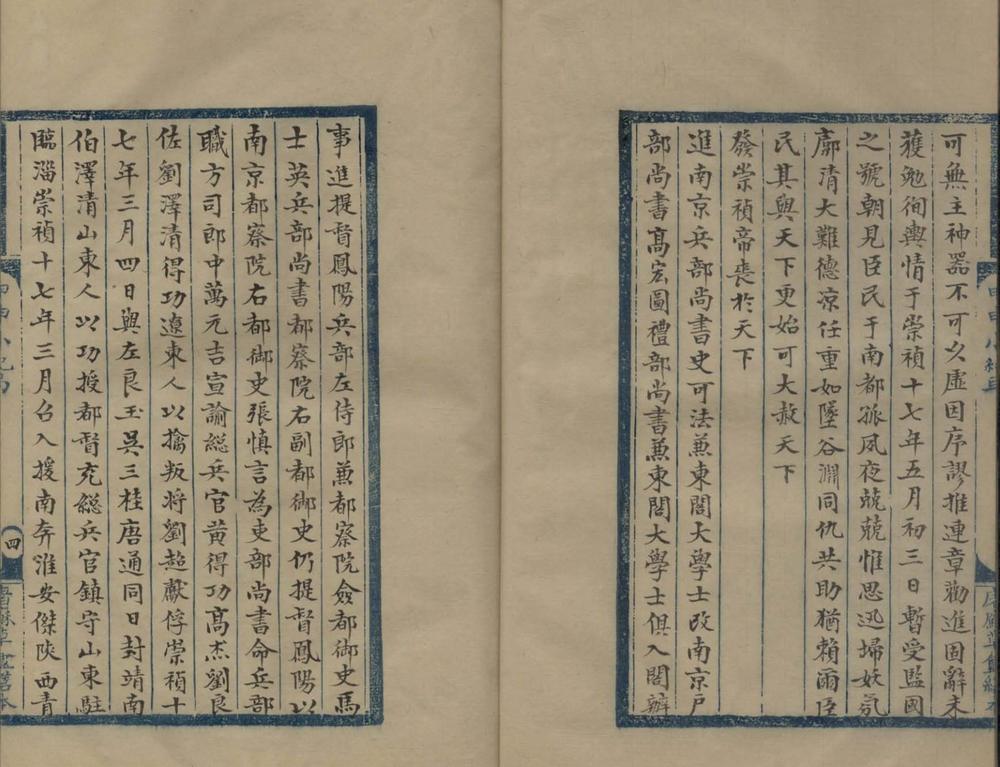 可無主神器不可以虛因序謬推連章勸進固辭未
獲勉徇輿情于崇禎十七年五月初三日暫受監國
之號朝見臣民于南都孤夙夜兢兢惟思迅埽妖氛
廓清大難德凉任重如墜谷淵同仇共助猶賴爾臣
民其與天下更始可大赦天下
發崇禎帝喪於天下
進南京兵部尚書史可法兼東閣大學士改南京戶
部尚書髙宏圖禮部尚書兼東閣大學士俱入閣辦
事進提督鳳陽兵部左侍郎兼都察院僉都御史馬
士英兵部尚書都察院右副都御史仍提督鳳陽以
南京都察院右都御史張慎言為吏部尚書命兵部
職方司郎中萬元吉宣諭緫兵官黄得功髙杰劉良
佐劉澤清得功遼東人以擒叛将劉超獻俘崇禎十
七年三月四日與左良玉吳三桂唐通同日封靖南
伯澤清山東人以功授都督充緫兵官鎮守山東駐
臨淄崇禎十七年三月召入援南奔淮安傑陝西青
四